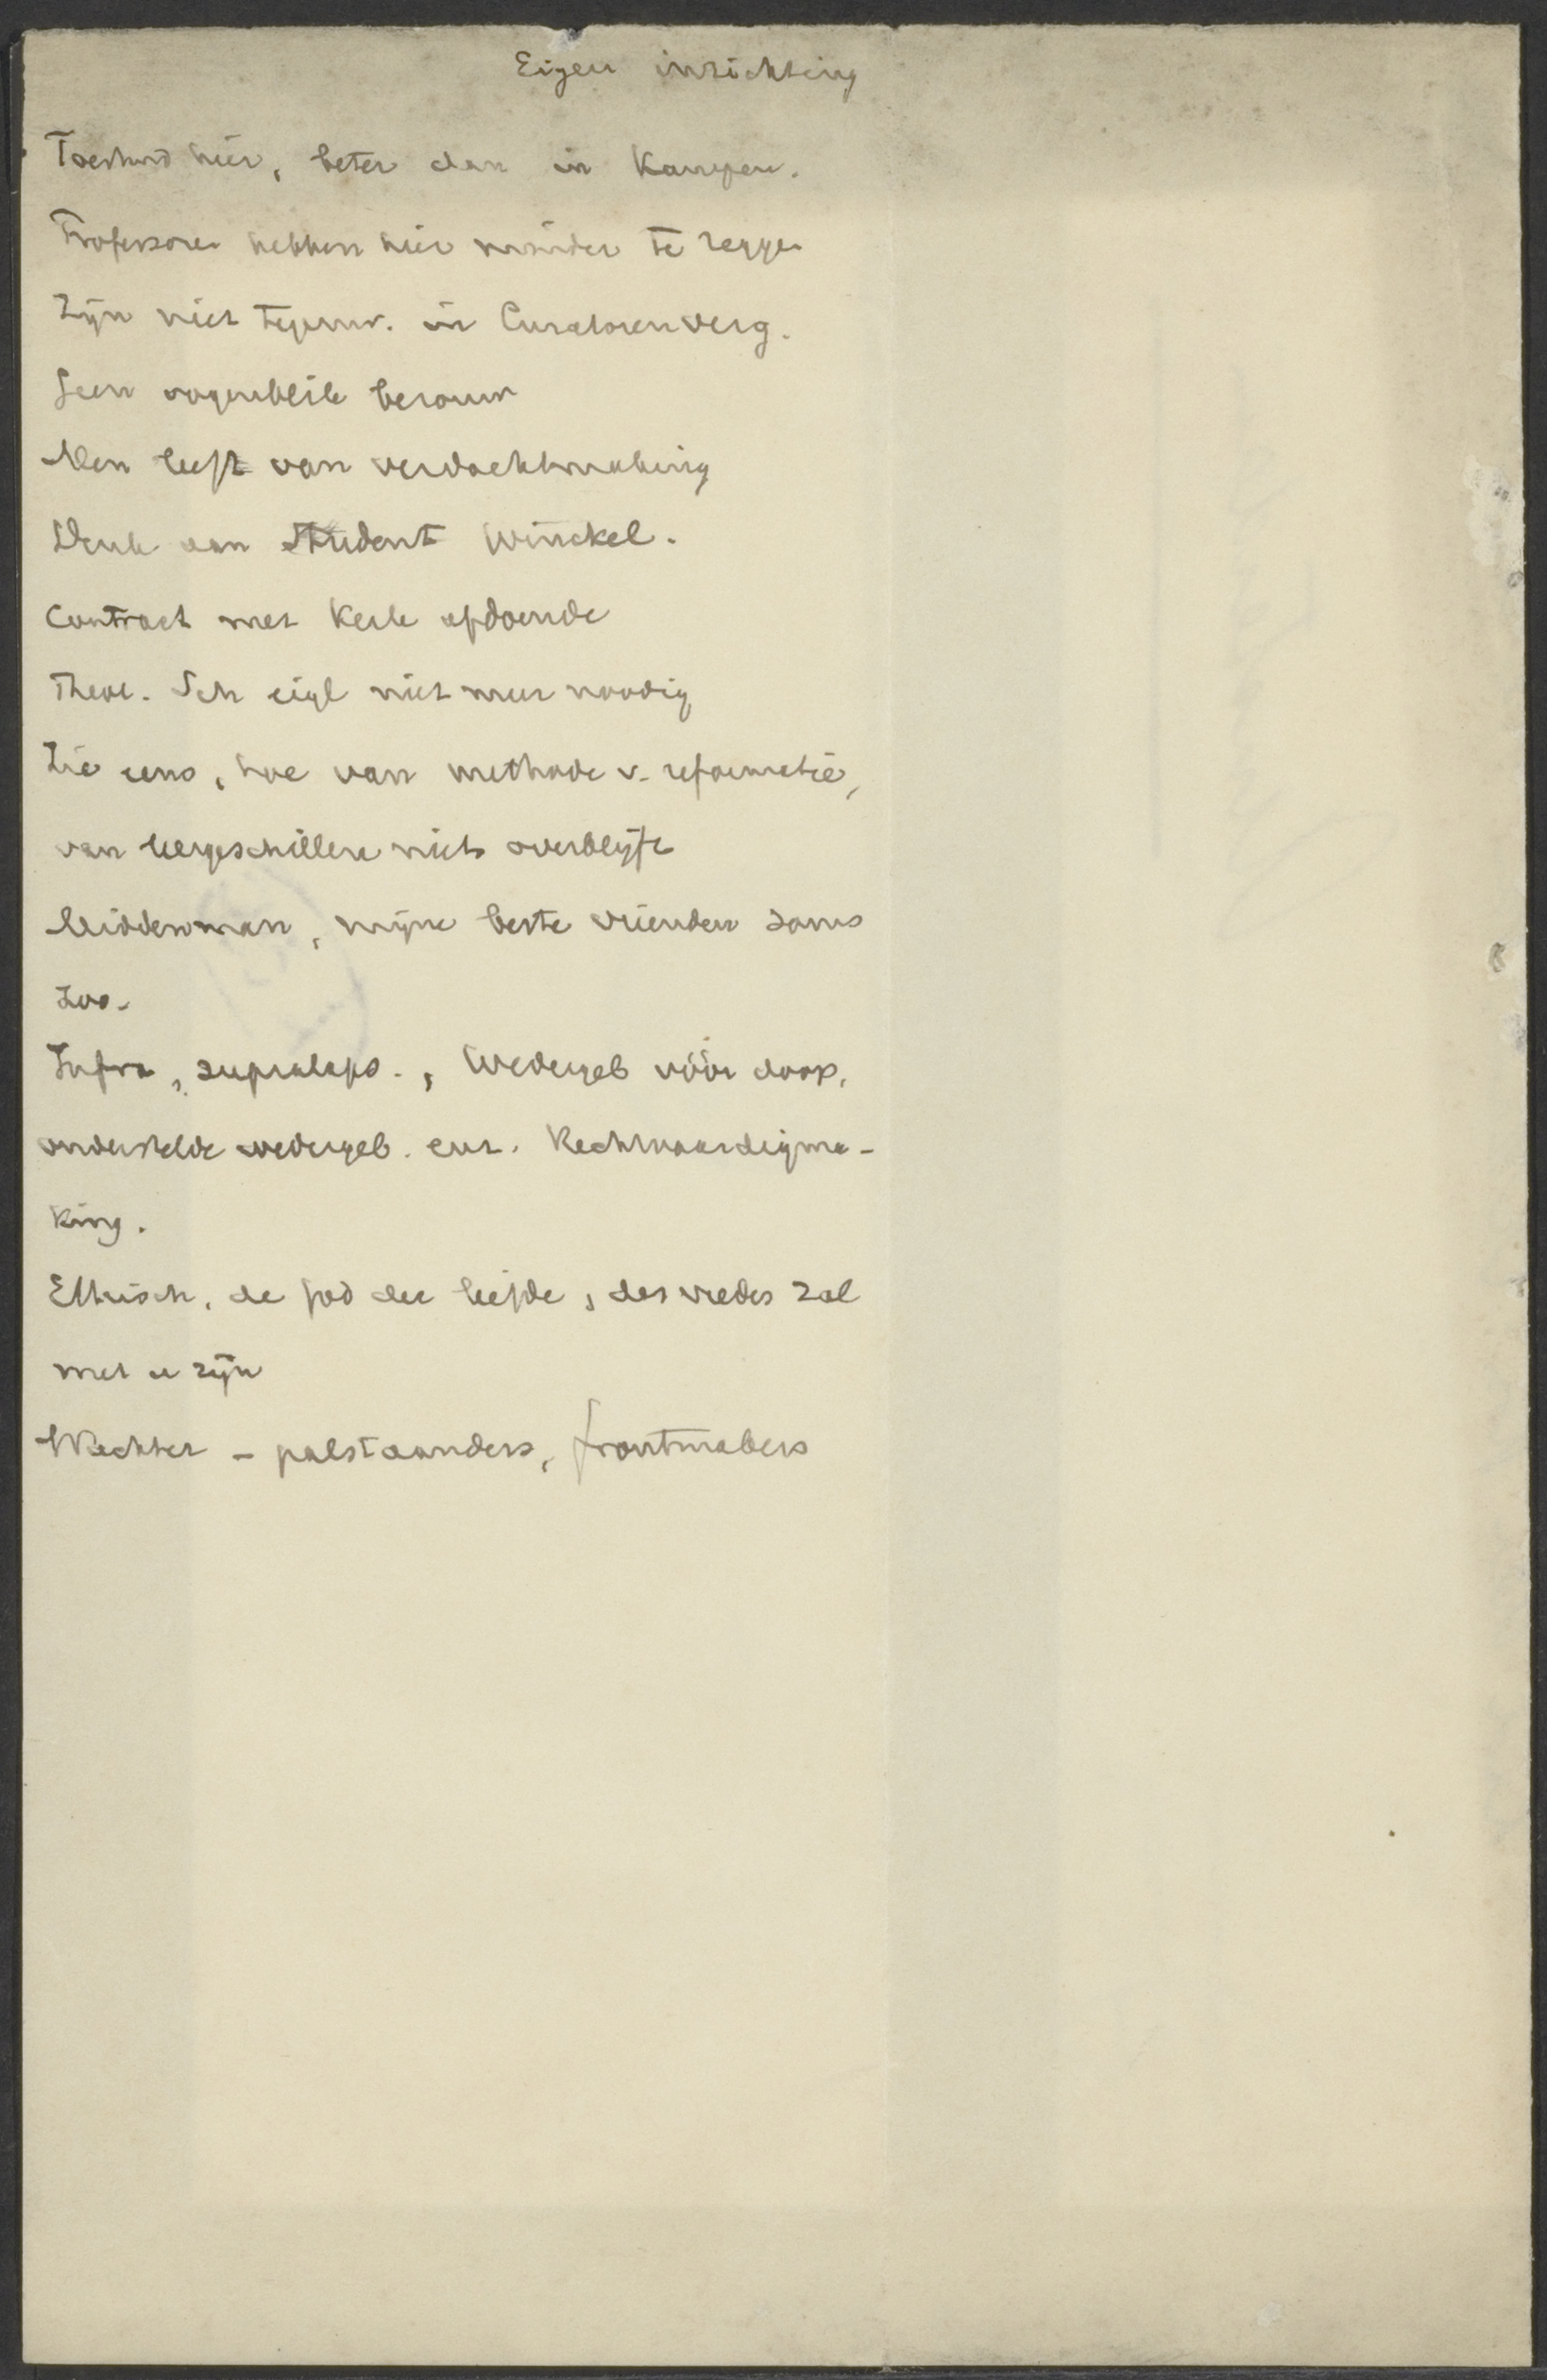 Eigen inrichting
Toestand hier, beter dan in Kampen.
Professoren hebben hier minder te zeggen
Zijn niet tegenw. in Curatorenverg.
Geen oogenblik berouw
Men leeft van verdachtmaking
Denk aan student Winckel.
Contract met Kerk afdoende
Theol. Sch eigl niet meer noodig
Zie eens, hoe van methode v. reformatie,
van leergeschillen niets overblijft
Middenman, mijne beste vrienden soms
zoo.
Infra, supralaps., Wedergeb vóór doop,
onderstelde wedergeb. euw. Rechtvaardigma-
king.
Ethisch, de God der liefde, des vredes zal
met u zijn
Wachter - palstaanders, frontmakers